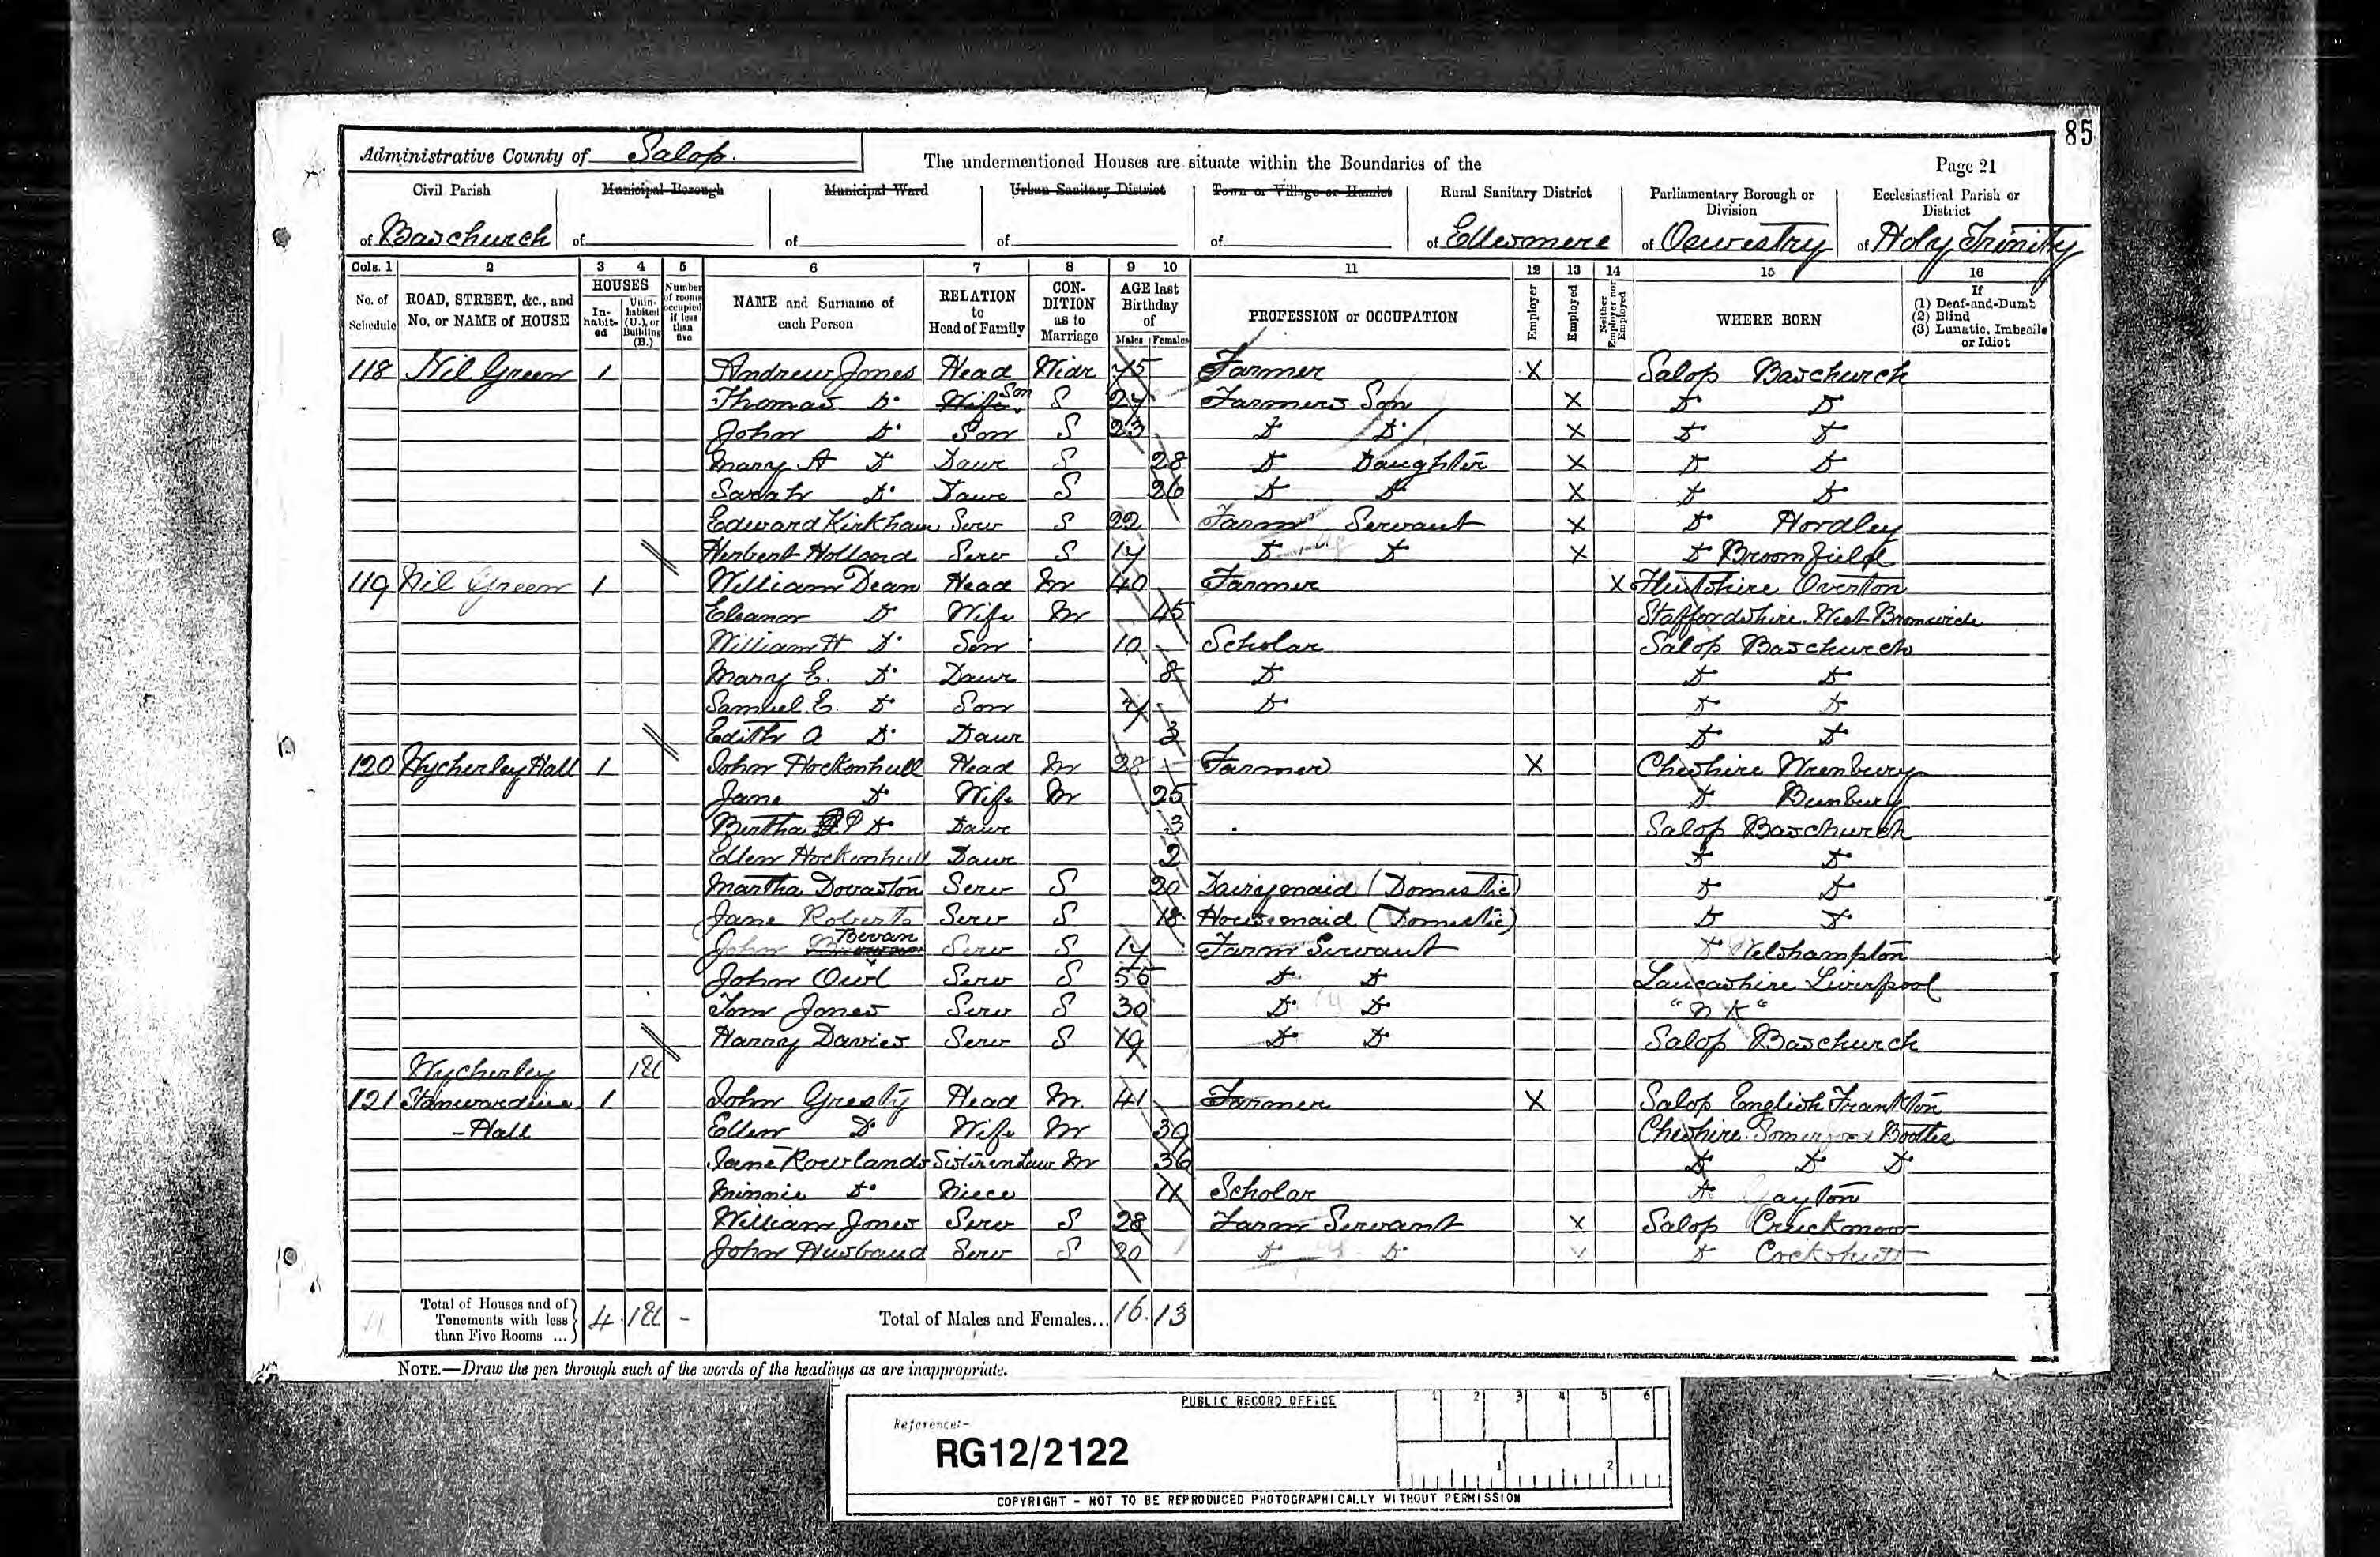 85
Administrative County of Salop. The undermentioned Houses are situate within the Boundaries of the Page 21
Civil Parish Municipal Borough Municipal Ward Urban Sanitary District Town or Village or Hamlet Rural Sanitary District Parliamentary Borough or Division Ecclesiastical Parish or District
of Baschurch of of of of of Ellesmere of Oswestry of Holy Trinity
Cols. 1 2 3 4 5 6 7 8 9 10 11 12 13 14 15 16
No. of Schedule ROAD, STREET, &c., and No. or NAME of HOUSE HOUSES Inhabited Uninhabited (U.), or Building (B.) Number of rooms occupied if less than five NAME and Surname of each Person RELATION to Head of Family CONDITION as to Marriage AGE last Birthday of Males Females PROFESSION or OCCUPATION Employer Employed Neither Employer nor Employed WHERE BORN If (1) Deaf-and-Dumb (2) Blind (3) Lunatic, Imbecile or Idiot
118 Nil Green 1 Andrew Jones Head Widr 75 Farmer X Salop Baschurch
Thomas Do Wife Son S 27 Farmers Son X Do Do
John Do Son S 23 Do Do X Do Do
Mary A Do Daur S 28 Do Daughter X Do Do
Sarah Do Daur S 26 Do Do X Do Do
Edward Kirkham Serv S 22 Farm Servant X Do Hordley
Herbert Holland Serv S 17 Do Do X Do Broomfield
119 Nil Green 1 William Dean Head M 40 Farmer X Flintshire Overton
Eleanor Do Wife M 45 Staffordshire West Bromwich
William H Do Son 10 Scholar Salop Baschurch
Mary E. Do Daur 8 Do Do Do
Samuel E. Do Son Do Do Do
Edith A Do Daur 3 Do Do
120 Wycherley Hall 1 John Hockenhull Head M 28 Farmer X Cheshire Wrenbury
Jane Do Wife M 25 Do Bunbury
Bertha P Do Daur 3 Salop Baschurch
Ellen Hockenhull Daur 2 Do Do
Martha Dovaston Serv S 20 Dairymaid (Domestic) Do Do
Jane Roberts Serv S 18 Housemaid (Domestic) Do Do
John Bevan Serv S 17 Farm Servant Do Welshampton
John Owl Serv S 55 Do Do Lancashire Liverpool
Tom Jones Serv S 30 Do Do "N K"
Harry Davies Serv S 19 Do Do Salop Baschurch
Wycherley 1U
121 Stanwardine 1 John Gresty Head M. 41 Farmer X Salop English Frankton
- Hall Ellen Do Wife M 39 Cheshire Booths
Jane Rowlands Sister in Law M 36 Do Do Do
Minnie Do Niece 11 Scholar Do Gayton
William Jones Serv S 28 Farm Servant X Salop Cruckmoor
John Husband Serv S 20 Do Do X Do Cockshutt
4 Total of Houses and of Tenements with less than Five Rooms ... 4 1U - Total of Males and Females... 16 13
NOTE.—Draw the pen through such of the words of the headings as are inappropriate.
PUBLIC RECORD OFFICE
Reference:-
RG12/2122
1 2 3 4 5 6
1 2
COPYRIGHT - NOT TO BE REPRODUCED PHOTOGRAPHICALLY WITHOUT PERMISSION